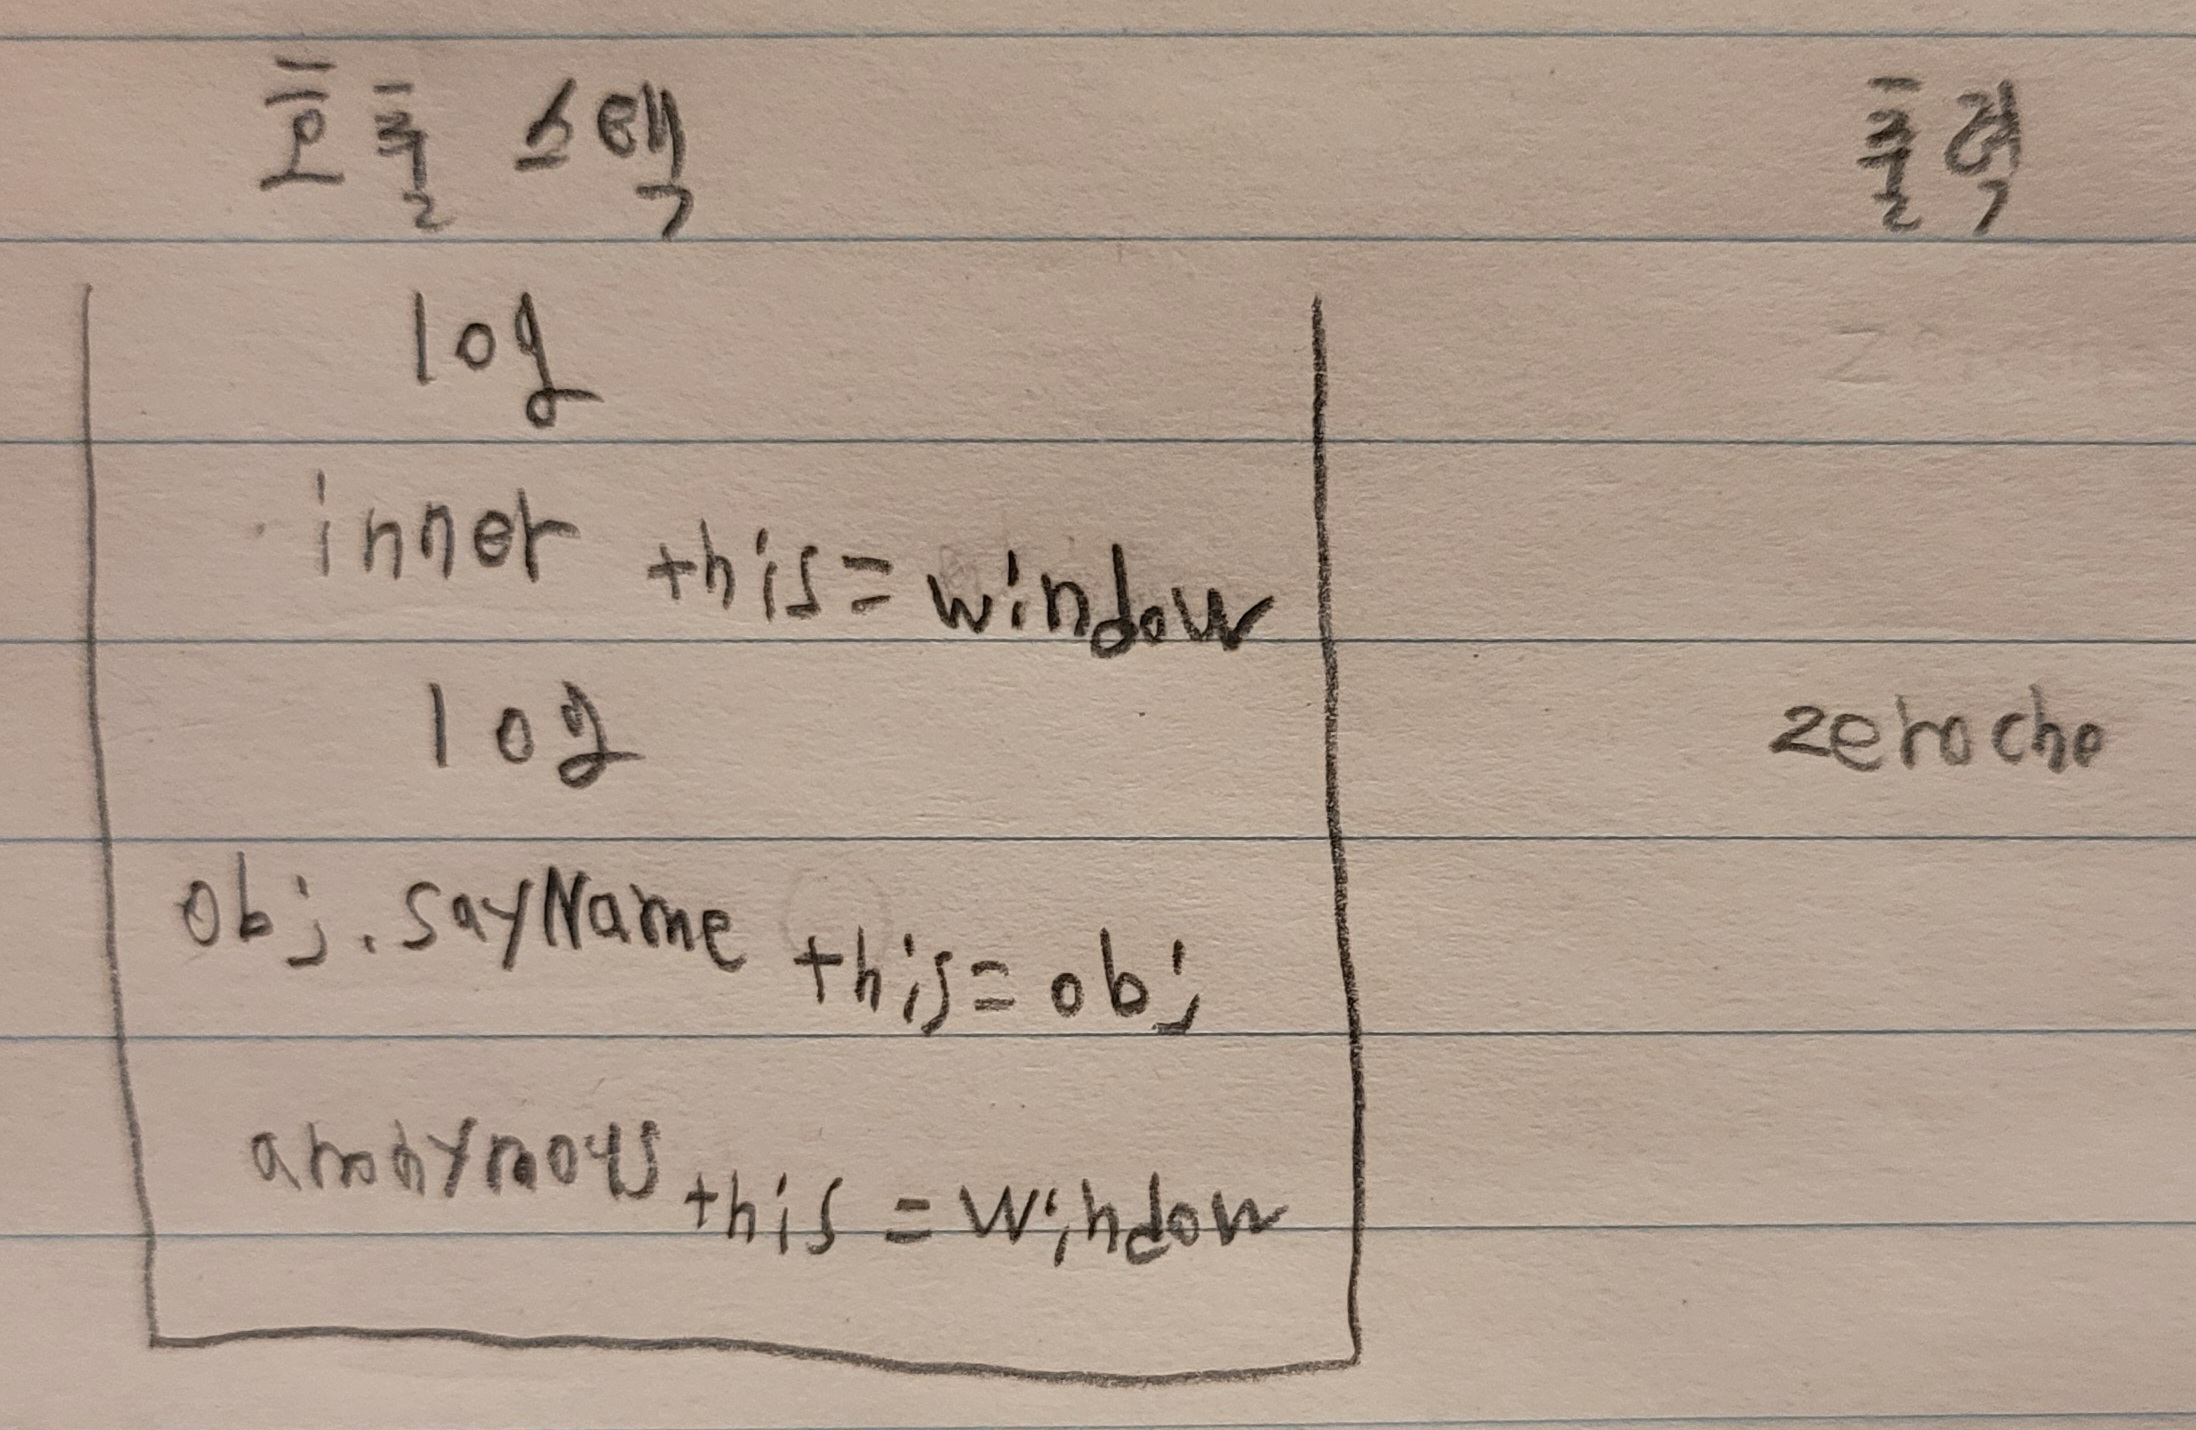 호출 스택 출력
log
inner this=window
log zerocho
obj.sayName this=obj
anonymous this=window